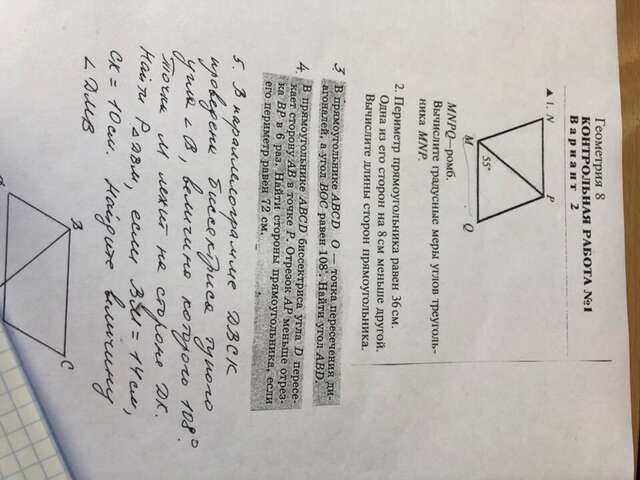 Геометрия 8
КОНТРОЛЬНАЯ РАБОТА №1
Вариант 2
▲ 1. N
P
55°
M
Q
MNPQ — ромб.
Вычислите градусные меры углов треуголь-
ника MNP.
2. Периметр прямоугольника равен 36 см.
Одна из его сторон на 8 см меньше другой.
Вычислите длины сторон прямоугольника.
3 В прямоугольнике ABCD O — точка пересечения ди-
агоналей, а угол BOC равен 108°. Найти угол ABD.
4. В прямоугольнике ABCD биссектриса угла D пересе-
кает сторону AB в точке P. Отрезок AP меньше отрез-
ка BP в 6 раз. Найти стороны прямоугольника, если
его периметр равен 72 см.
5. В параллелограмме ДВСК
проведена биссектриса тупого
угла ∠В, величина которого 108°.
Точка М лежит на стороне ДК.
Найти P△ДВМ, если ВМ = 14см,
СК = 10см. Найдите величину
∠ДМВ
В
С